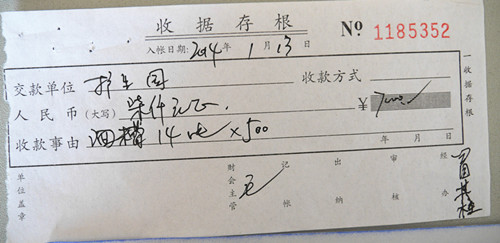 收据存根 No 1185352
入帐日期: 2014年1月13日
交款单位 收款方式
人民币(大写) 柒仟元正 ¥7000
收款事由 油槽14吨×500
年 月 日
单位盖章 财会主管 记帐 出纳 审核 经办
一收据存根